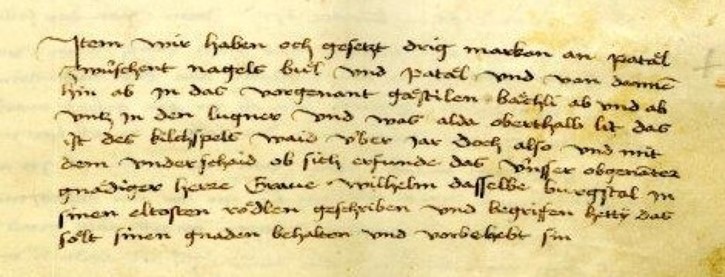 Jtem wir haben och gesetzt drig markan an patǎl
zwüschent nagels bül vnd patǎl vnd von dannē
hin ab in das vorgenant gǎstilen bǎchli ab vnd ab
vntz in den lugner vnd was alda oberthalb lit das
ist des kilchspels waid über jar doch also vnd mit
dem vnderschaid ob sich erfunde das vnsser obgenāter
gnǎdiger herre Graue wilhelm dasselbe burgstal in
sinen eltosten rǒdlen geschriben vnd begriffen hetty das
sǒlt sinen gnaden behalton vnd vorbehebt sin